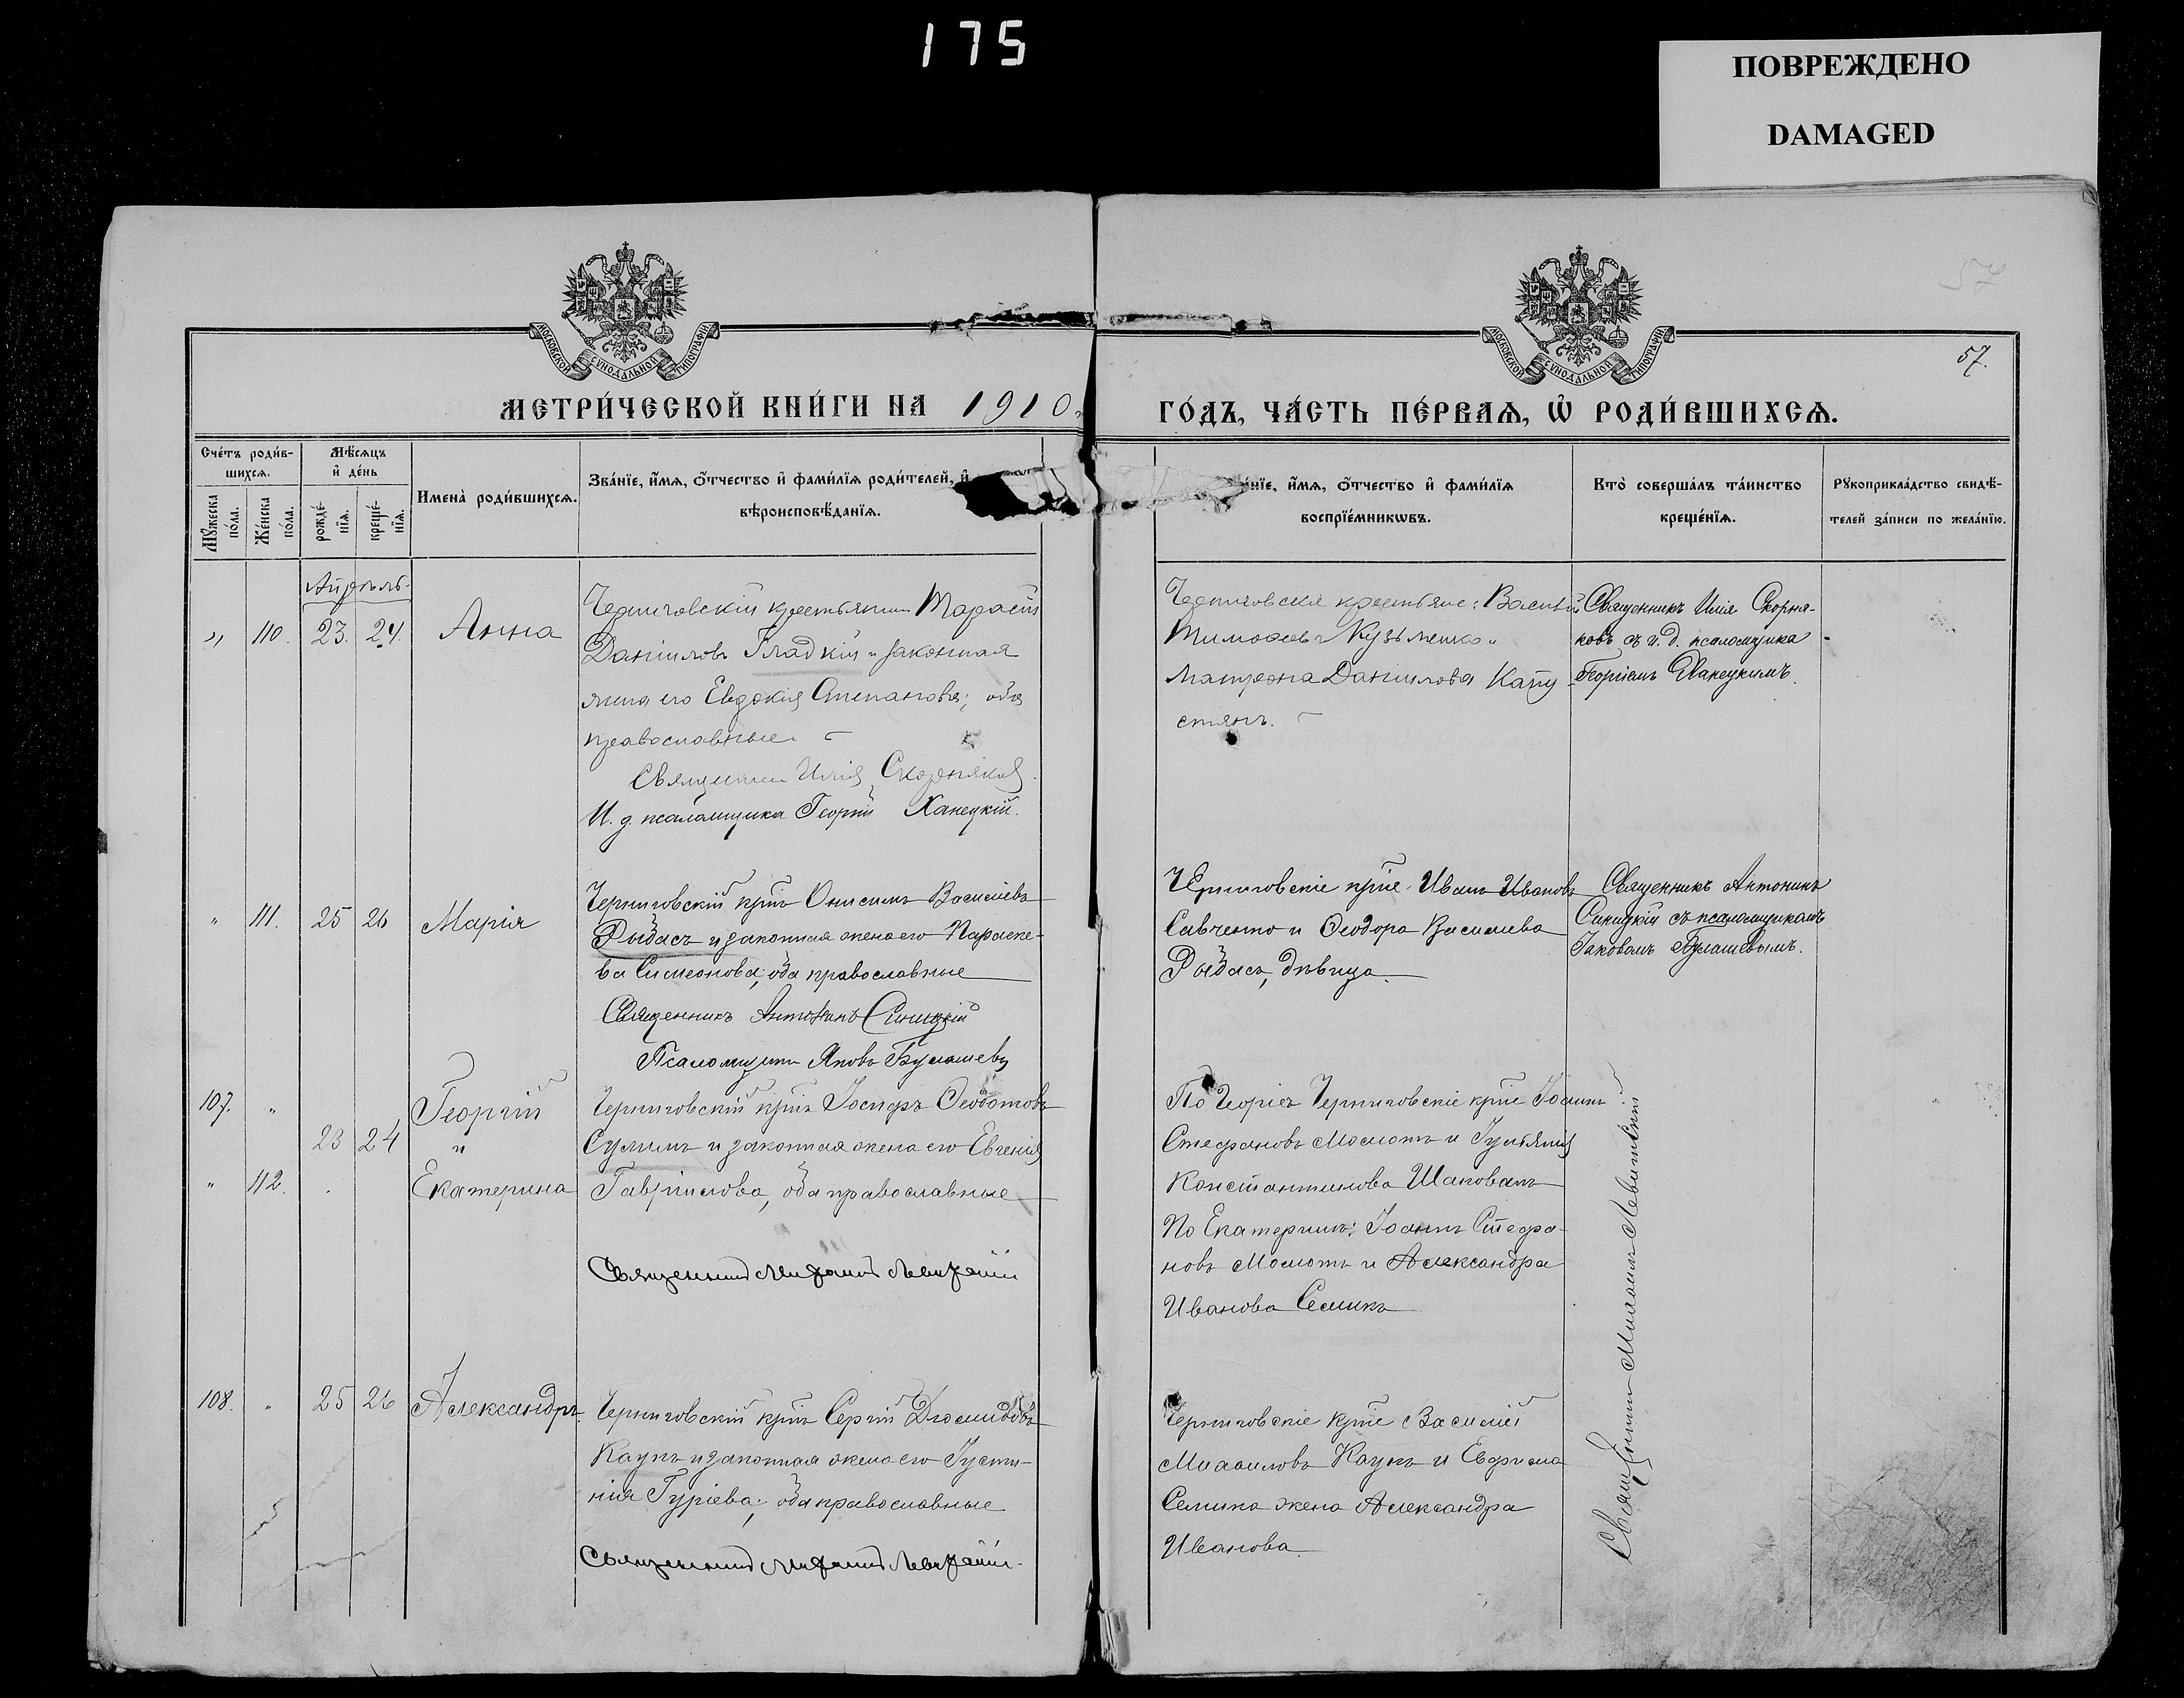 175
ПОВРЕЖДЕНО
DAMAGED
57
МОСКОВСКОЙ СѴНОДАЛЬНОЙ ТИПОГРАФІИ
МОСКОВСКОЙ СѴНОДАЛЬНОЙ ТИПОГРАФІИ
57.
МЕТРИ́ЧЕСКОЙ КНИ́ГИ НА 1910
ГО́ДЪ, ЧА́СТЬ ПЕ́РВАѦ, Ѽ РОДИ́ВШИХСѦ.
Сче́тъ роди́в-
шихсѧ.
Мꙋ́жеска по́ла.
Же́нска по́ла.
Мѣ́сѧцъ
и҆ де́нь
рожде́-
нїѧ.
креще́-
нїѧ.
Имена̀ роди́вшихсѧ.
Зва́нїе, и҆́мѧ, ѻ҆́тчество и҆ фами́лїѧ роди́телей, и҆
вѣроисповѣ́данїѧ.
нїе, и҆́мѧ, ѻ҆́тчество и҆ фами́лїѧ
воспрїе́мникѡвъ.
Кто̀ соверша́лъ та́инство
креще́нїѧ.
Рꙋкоприкла́дство свидѣ́-
телей за́писи по жела́нїю.
Апрѣль
" 110. 23. 24. Анна
Черниговскій крестьянин Тарасій
Даніиловъ Гладкій и законная
жена его Евдокія Степанова; оба
православные
Священник Илія Скорняков
И. д. псаломщика Георгій Ханецкій.
Черниговскіе крестьяне: Василій
Тимофеев Кузьменко и
Матрона Данилова Капу-
стянъ.
Священникъ Илія Скорня-
ковъ съ и. д. псаломщика
Георгіемъ Ханецкимъ.
" 111. 25 26 Марія
Черниговскій крнъ Онисимъ Васильевъ
Рыбасъ и законная жена его Параске-
ва Симеонова; оба православные
Священникъ Антонинъ Синицкій
Псаломщикъ Яковъ Булашевъ
Черниговскіе крне Иванъ Ивановъ
Савченко и Ѳеодора Василиева
Рыбасъ, дѣвица.
Священникъ Антонинъ
Синицкій съ псаломщикомъ
Іаковомъ Булашевымъ.
107. " Георгій
23 24 и
" 112. Екатерина
Черниговскій крнъ Іосифъ Ѳедотовъ
Сулимъ и законная жена его Евгенія
Гавріилова, оба православные
Священникъ Михаилъ Левитскій
По Георгіѣ Черниговскіе крне Іоаннъ
Стефановъ Молотъ и Іуліянія
Константинова Шаповалъ
По Екатеринѣ: Іоаннъ Стефа-
новъ Молотъ и Александра
Иванова Семикъ
108. " 25 26 Александръ
Черниговскій крнъ Сергій Діомидовъ
Каунъ и законная жена его Іусти-
нія Гуріева; оба православные
Священникъ Михаилъ Левитскій
Черниговскіе крне Василій
Михаиловъ Каунъ и Евфима
Семика жена Александра
Иванова
Священникъ Михаилъ Левитскій